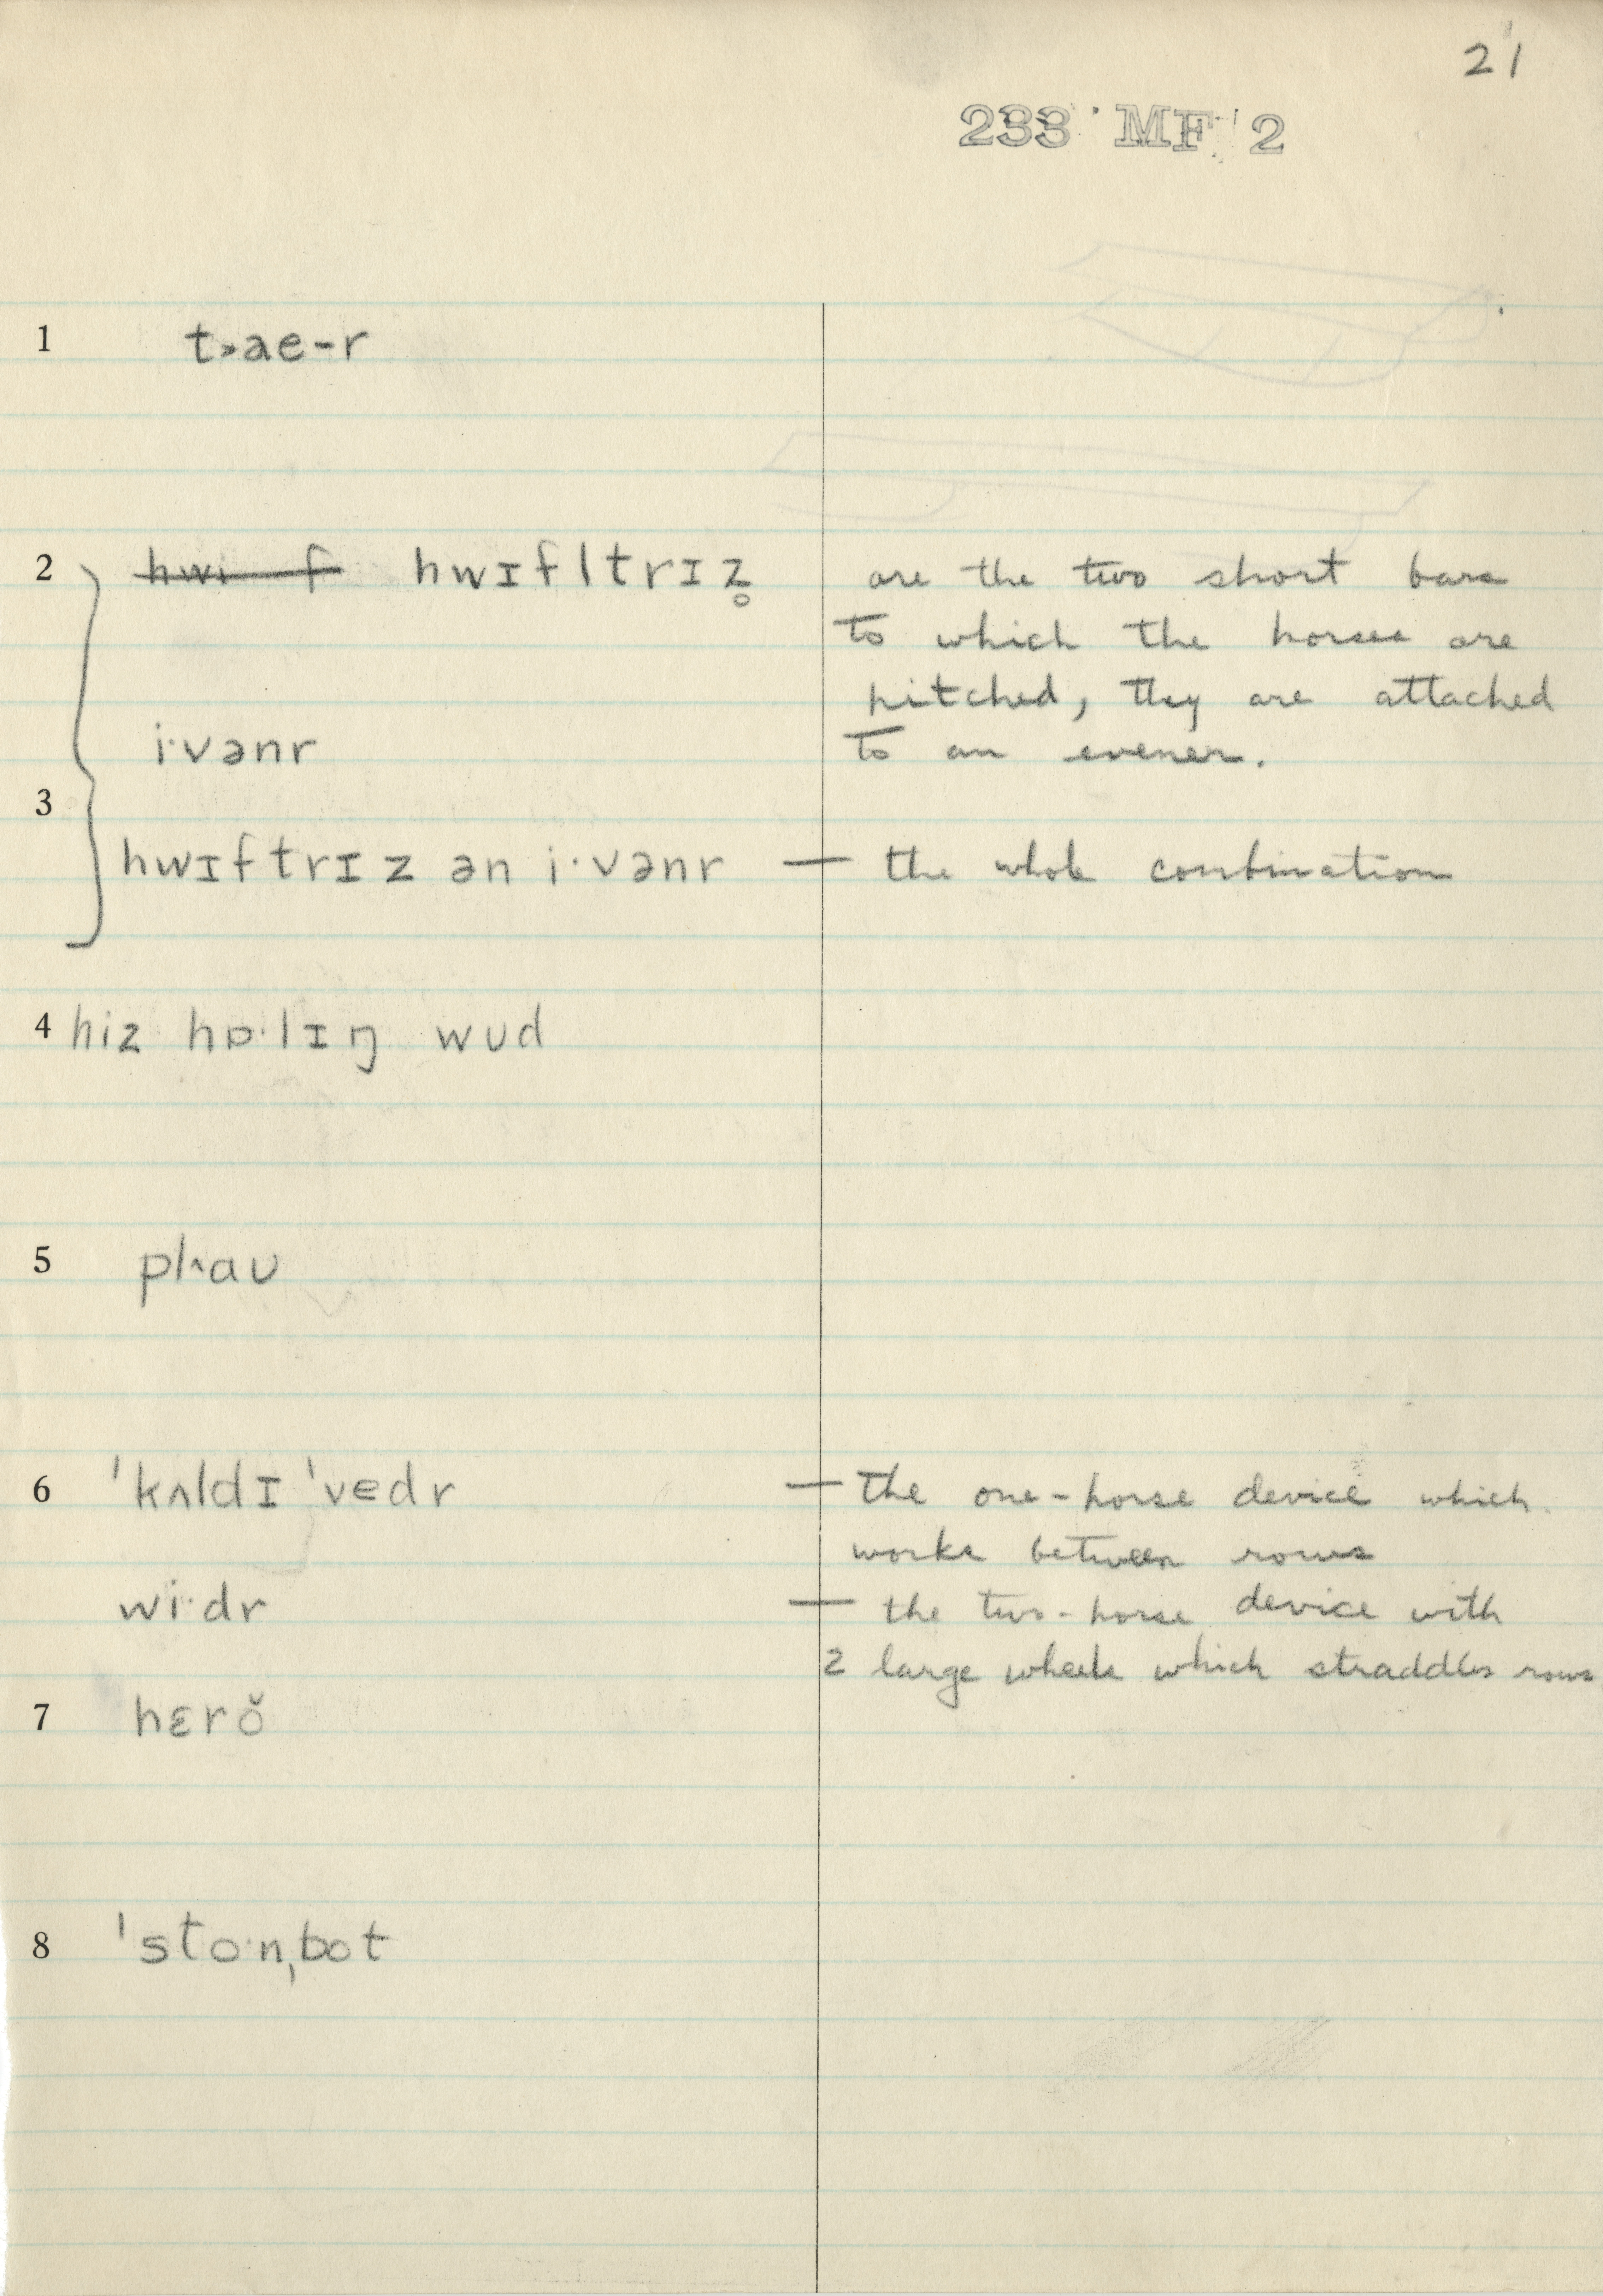 21
233 MF 2
1 t˃ae-r
2 hwi f hwɪfltrɪz̥ are the two short bars
to which the horses are
hitched, they are attached
i·vənr to an evener.
3
hwɪftrɪz ən i·vənr — the whole combination
4 hiz hɒ·lɪŋ wʊd
5 pl˄aʊ
6 ˈkʌldɪˈvedr — the one-horse device which
works between rows
wi·dr — the two-horse device with
2 large wheels which straddles rows
7 hɛrŏ
8 ˈsto·nˌbot